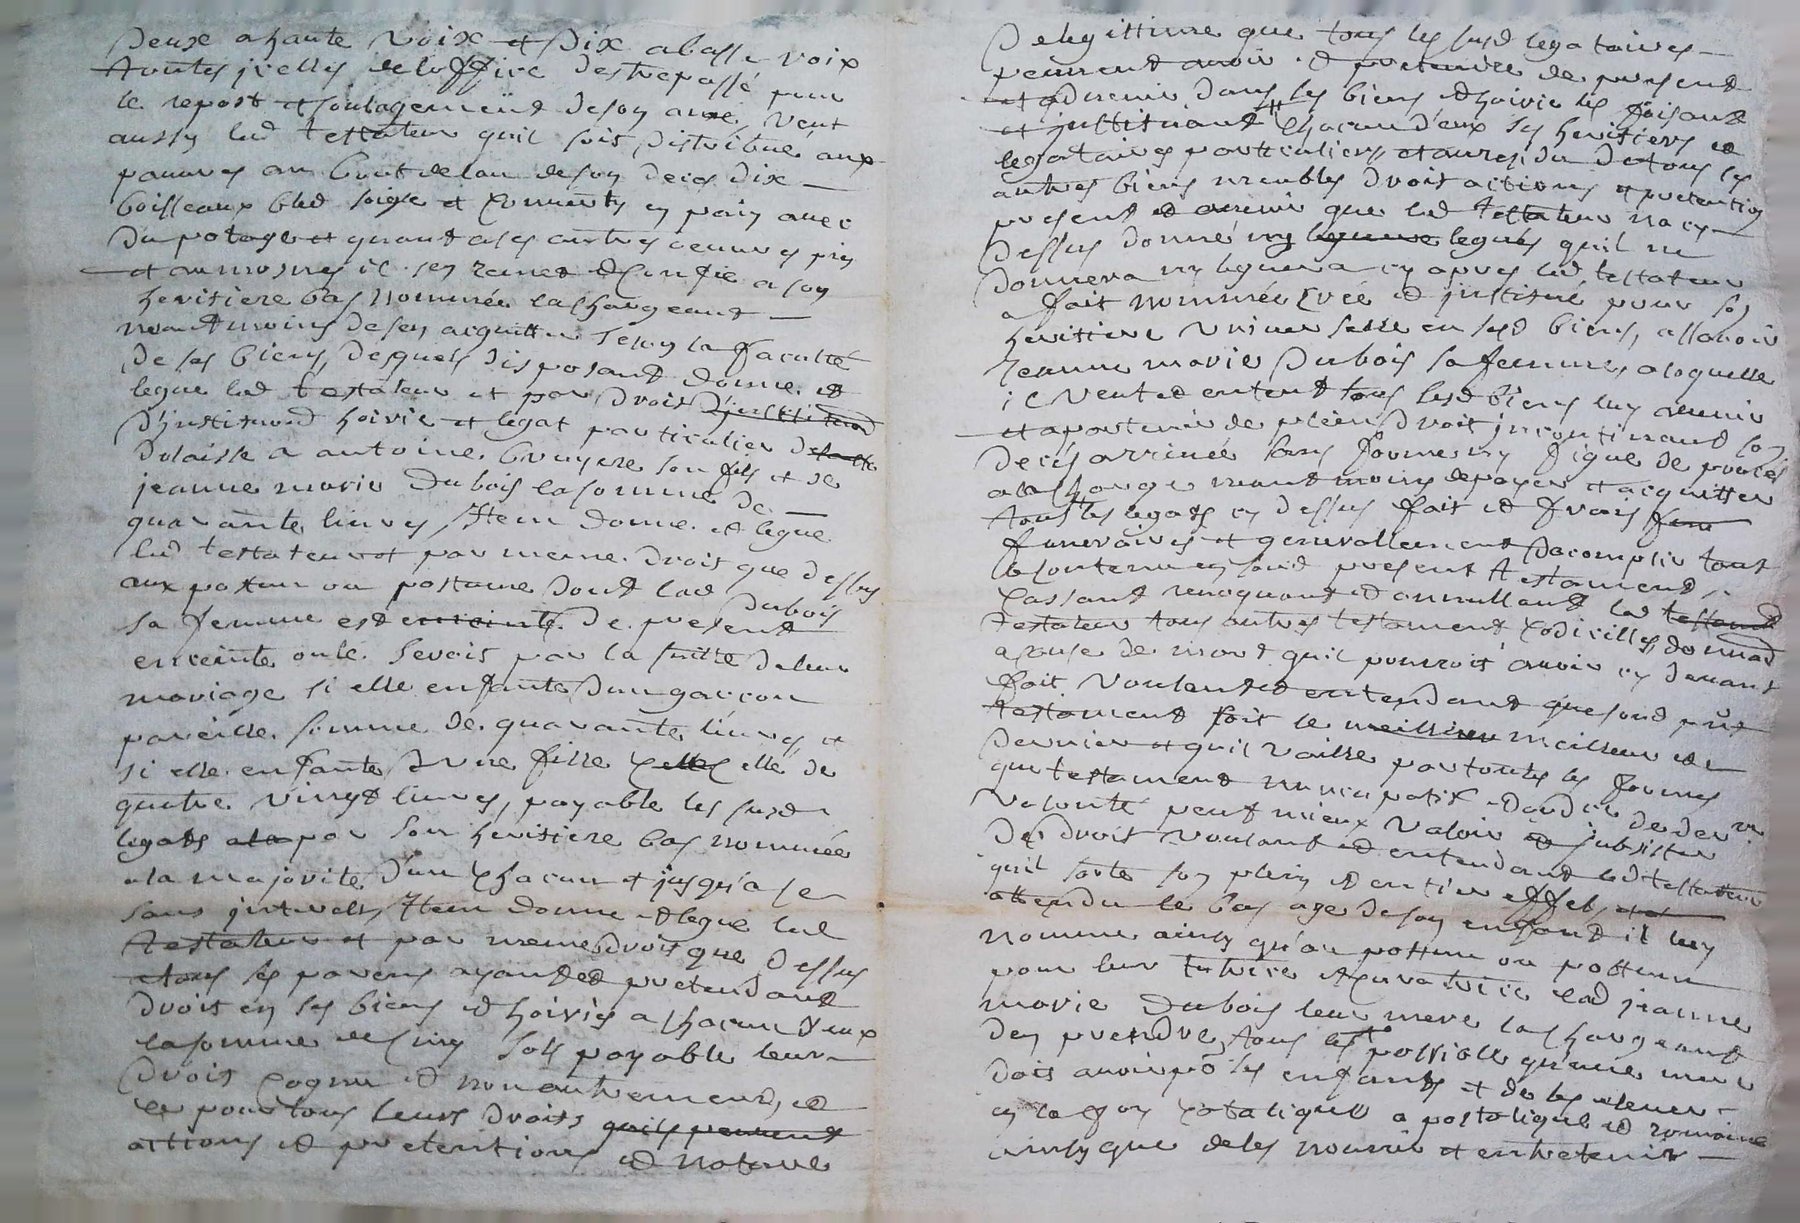 Deux a haute voix et Dix a basse voix
toutes jcelles de loffice des trepassé pour
le repost et soulagement de son ame, veut
aussy led testateur quil soit Distribué aux
pauvres au bout de lan de son deces dix
boisseaux bled soigle et convertis en pain avec
Du potage et quant a ses autres oeuvres pies
et aumosnes il sen remet et confie a son
heritiere bas nommée la chargeant
neantmoins desen acquitter selon la faculté
De ses biens, desquels disposant donne et
legue led testateur et par droit
D'institution hoirie et legat particulier
Delaisse a antoine bruyere son fils et de
jeanne marie Dubois la somme de
quarante livres Item donne et legue
led testateur et par meme droit que dessus
aux postume ou postume dont lad Dubois
sa femme est enceinte De present
enceinte ou le seroit par la suitte de leur
mariage si elle enfante d'un garcon
pareille somme de quarante livres, et
si elle enfante d'une fille celle de
quatre vingt livres, payable les susd
legats par son heritiere bas nommée
a la majorité d'un chacun et jusqu'a ce
sans interests Item donne et legue led
testateur et par meme droit que dessus
a tous ses parens ayant et pretendant
droit en ses biens et hoiries a chacun d'eux
la somme de cinq sols payable leur
droit cognu et non autrement, et
ce pour tous leurs droits quils peuvent
actions et pretentions et nature
De legittime que tous les susd legataires
peuvent avoir et pretendre de present
et advenir dans ses biens et hoirie les faisant
et instituant chacun d'eux ses heritiers et
legataires particuliers, et au residu de tous ses
autres biens meubles droits actions et pretentions
present et avenir que led testateur na cy
dessus donné ny legués quil ne
donnera ny leguera cy apres led testateur
a fait nommée créé et institué pour son
heritiere universelle en sesd biens, assavoir
Jeanne marie Dubois sa femme, a laquelle
il veut et entent tous lesd biens luy avenir
et apartenir de plein droit incontinand son
deces arrivé sans forme ny figure de procés
a la charge neantmoins de payer et acquitter
tous les legats cy dessus fait et frais
funeraires et generallement dacomplir tout
le contenu en soud present testament,
Cassant revoquant et annullant led
testateur tous autres testament codicilles, donnaõn
a cause de mort quil pourroit avoir cy devant
fait voulant et entendant que soud pñt
testament soit le meilleur et
dernier et quil vaille par toutes les formes
que testament nuncupatif et
volonté peut mieux valoir et subsister
De droit voulant et entendant led testateur
quil sorte son plein et entier effet,
attendu le bas age de son enfant il luy
nomme ainsy qu'au postume ou postume
pour leur tutrice et curatrice lad jeanne
marie Dubois leur mere la chargeant
den prendre, tous les possible qu'une mere
doit avoir po ses enfants et de les elever
en la foy catolique apostolique et romaine
ainsy que de les nourir et entretenir